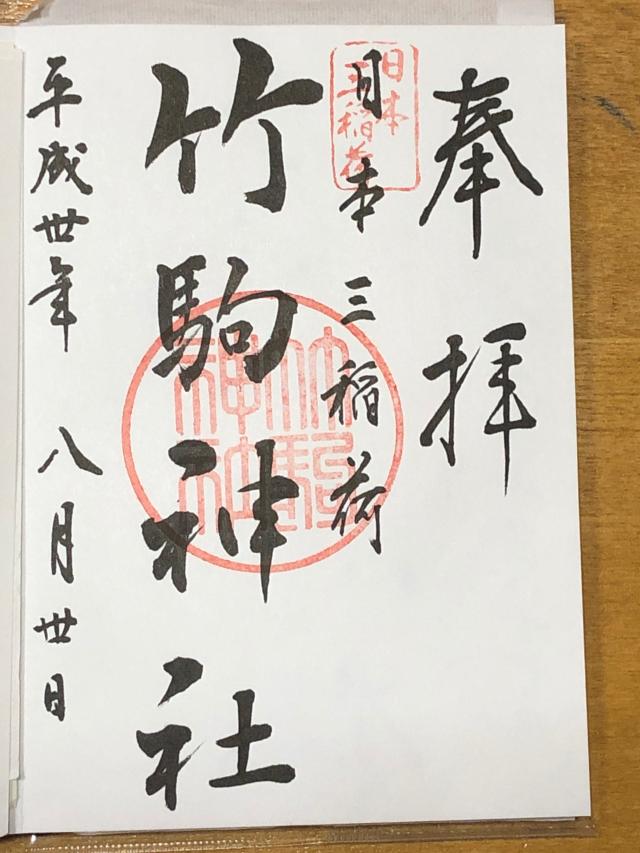 奉拝
日本三稲荷
日本
三稲荷
竹駒神社
竹駒
神社
平成卅年 八月卅日